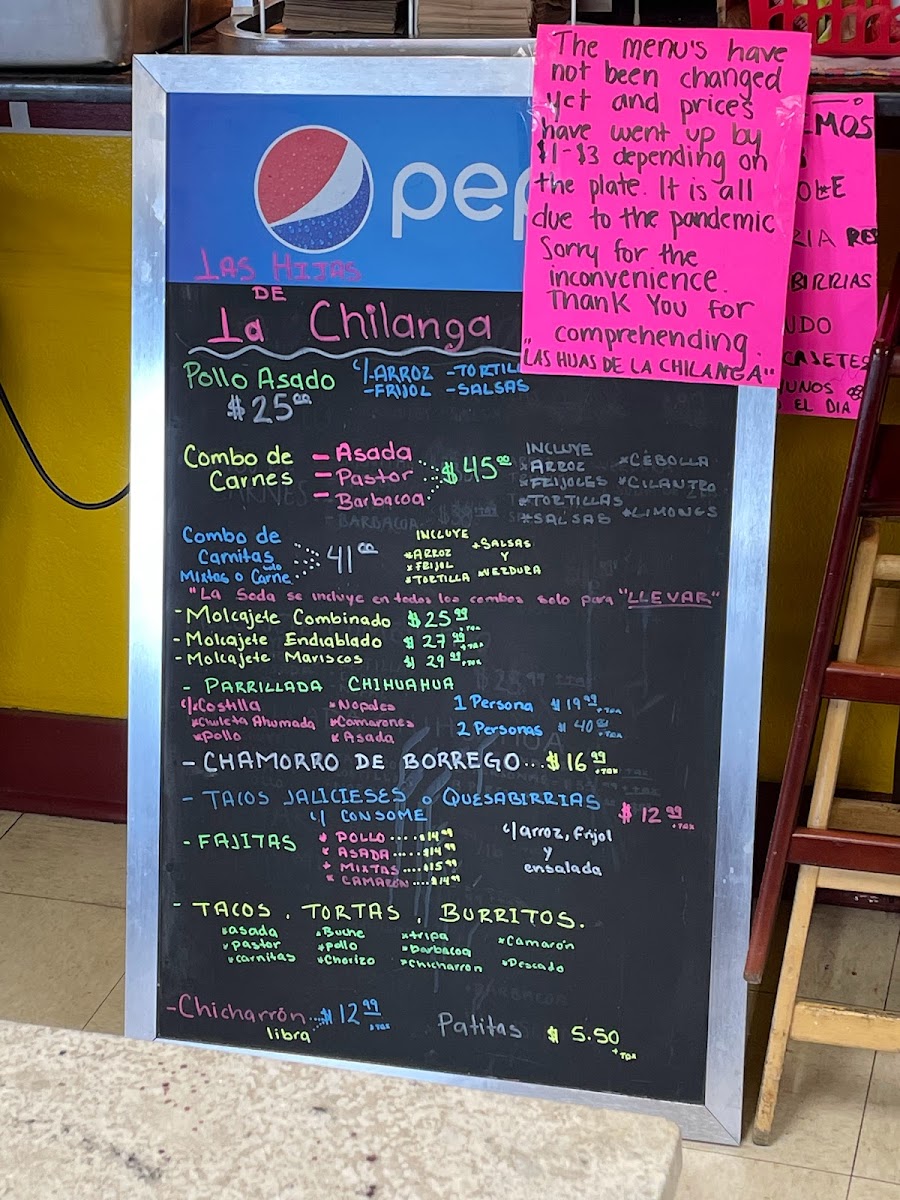 The menu's have
not been changed
yet and prices
have went up by
$1-$3 depending on
the plate. It is all
due to the pandemic
Sorry for the
inconvenience.
Thank You for
comprehending.
"LAS HIJAS DE LA CHILANGA"
pep
LAS HIJAS
DE
La Chilanga
Pollo Asado
$25.00
c/-ARROZ -TORTILL
-FRIJOL -SALSAS
Combo de
Carnes
- Asada
- Pastor
- Barbacoa
$45.00
INCLUYE
*ARROZ *CEBOLLA
*FRIJOLES *CILANTRO
*TORTILLAS
*SALSAS *LIMONES
Combo de
Carnitas
solo
Mixtas o Carne
41.00
INCLUYE
*ARROZ *SALSAS
*FRIJOL Y
*TORTILLA *VERDURA
"La Soda se incluye en todos los combos solo para "LLEVAR"
- Molcajete Combinado $25.99 +TAX
- Molcajete Endiablado $27.99 +TAX
- Molcajete Mariscos $29.99 +TAX
- PARRILLADA CHIHUAHUA
c/*Costilla *Nopales 1 Persona $19.99 +TAX
*Chuleta Ahumada *Camarones 2 Personas $40.00 +TAX
*Pollo *Asada
- CHAMORRO DE BORREGO...$16.99 +TAX
- TACOS JALICIESES o QUESABIRRIAS $12.99 +TAX
c/ CONSOME
- FAJITAS
* POLLO....$14.99
* ASADA.....$14.99
* MIXTAS....$15.99
* CAMARÓN....$14.99
c/arroz, frijol
y
ensalada
- TACOS, TORTAS, BURRITOS.
*asada *Buche *tripa *Camarón
*pastor *pollo *barbacoa
*carnitas *Chorizo *chicharron *Pescado
-Chicharrón ...$12.99 +TAX
libra
Patitas $5.50 +TAX
MOS
RIA RES
BIRRIAS
NDO
CAJETES
UNOS
EL DIA